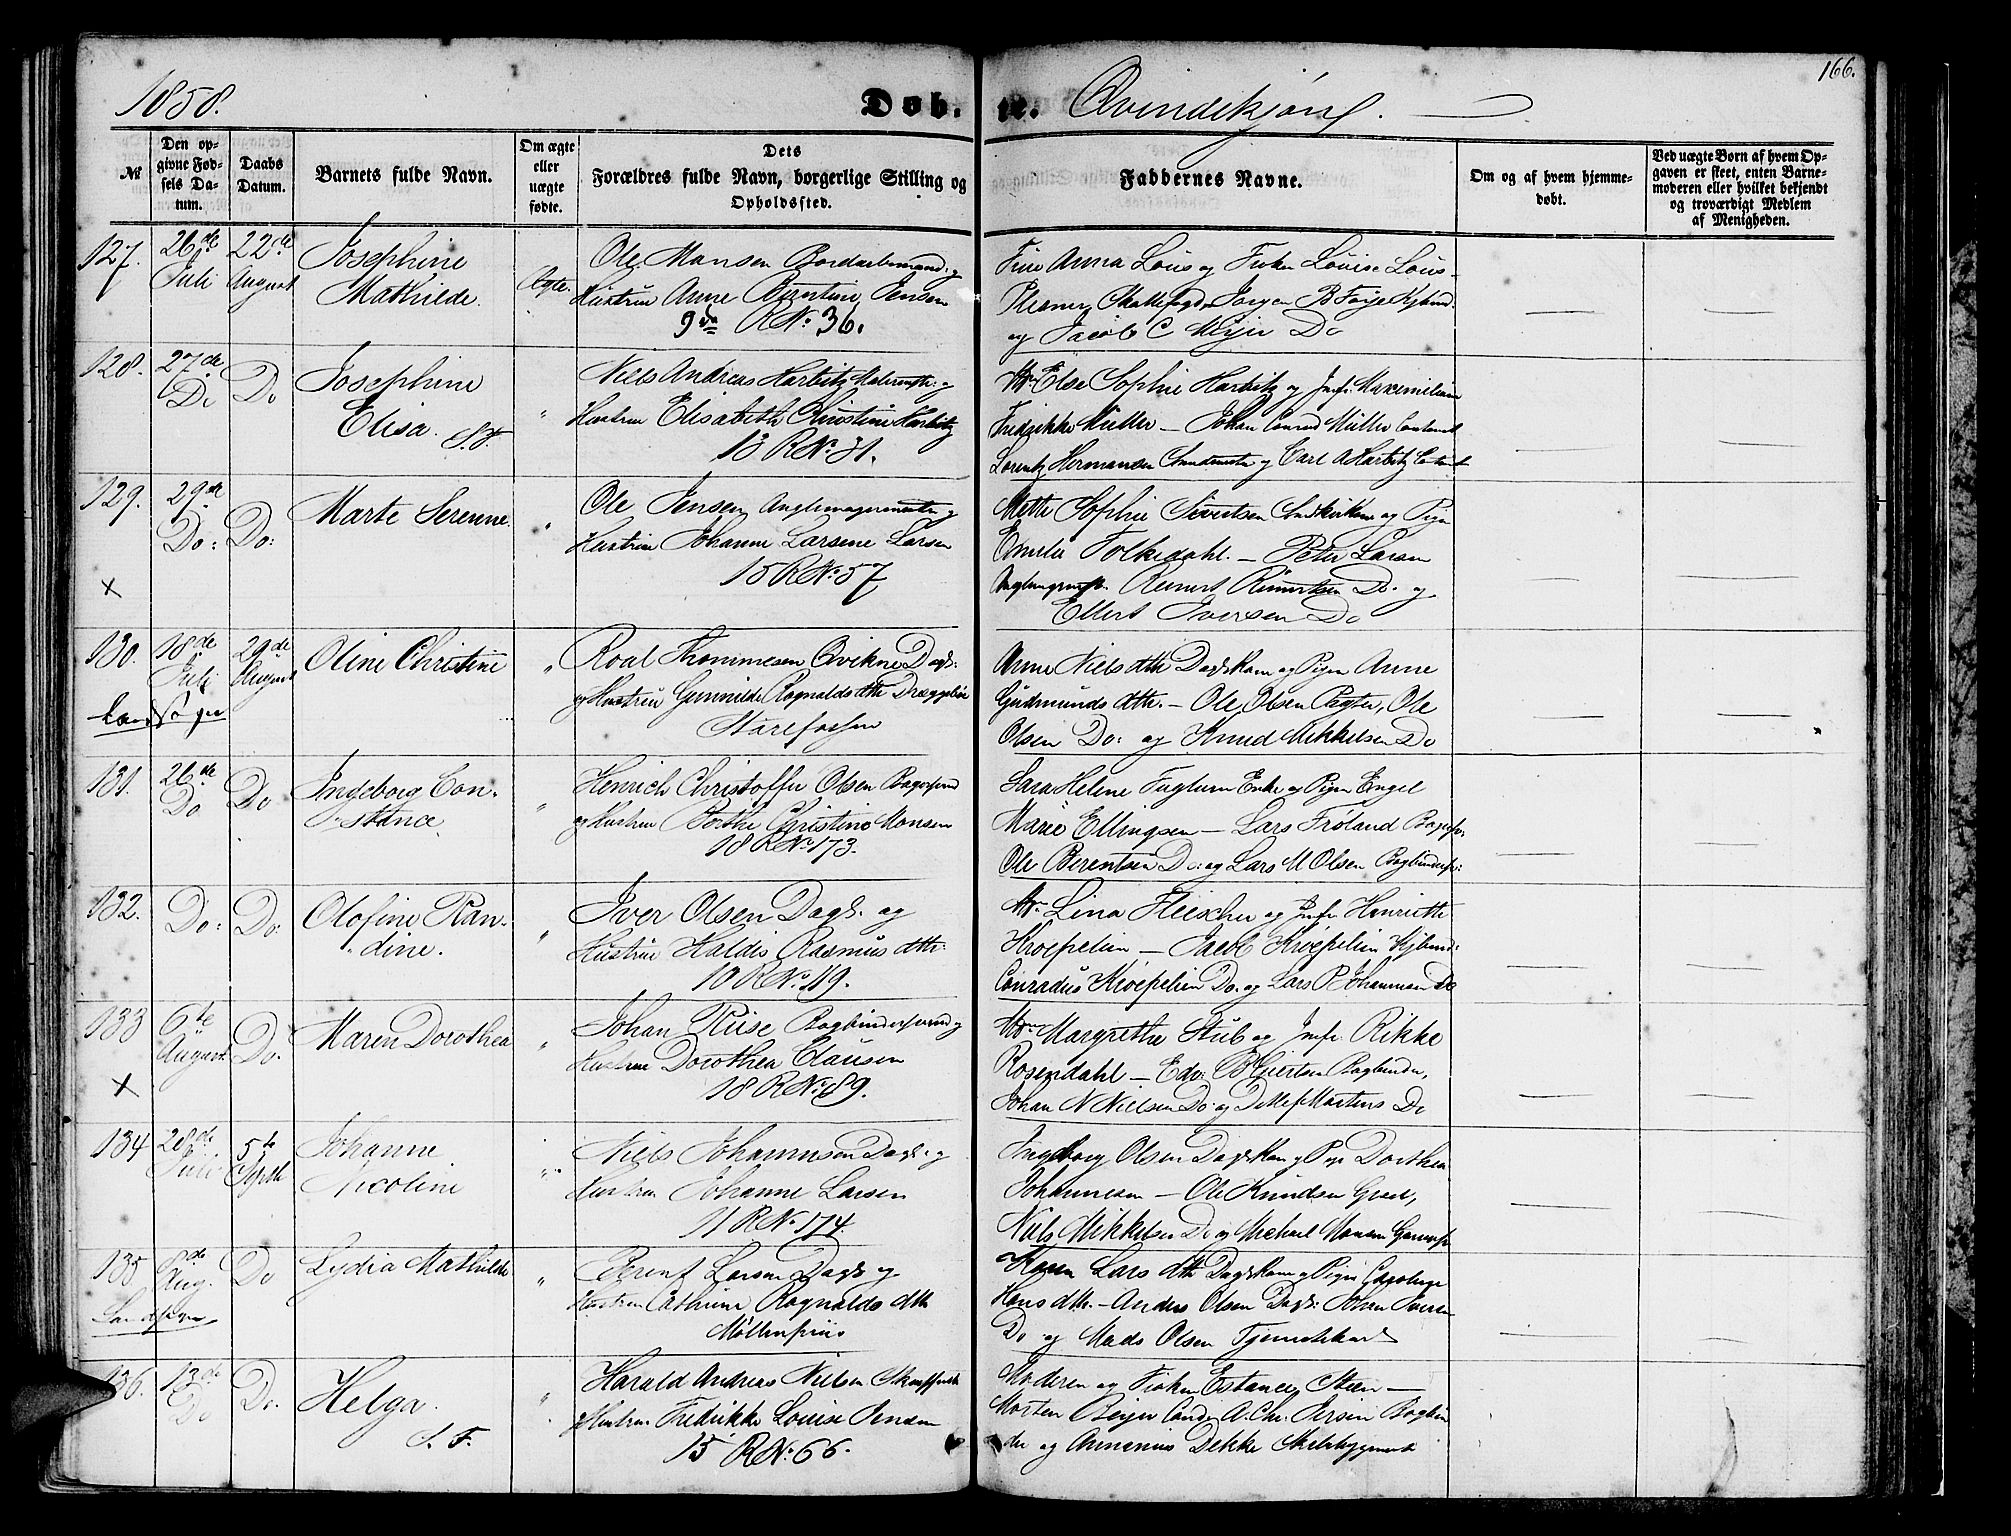 166.
1858.
Døb. te. Qvindekjøn.
№
Den op-
givne Fød-
sels Da-
tum.
Daabs
Datum.
Barnets fulde Navn.
Om ægte
eller
uægte
fødte.
Dets
Forældres fulde Navn, borgerlige Stilling og
Opholdssted.
Faddernes Navne.
Om og af hvem hjemme-
døbt.
Ved uægte Børn af hvem Op-
gaven er skeet, enten Barne-
moderen eller hvilket bekjendt
og troværdigt Medlem
af Menigheden.
127. 26de Juli 22de August
Josephine
Mathilde.
Ægte.
Ole Monsen og
Hustrue Anne Berntine Jensen
9de R№ 36.
Frue Anna Lous og Frøken Louise Lous
Jørgen B Faye
og Jacob C Meyer Do
128. 27de Do Do
Josephine
Elisa. S.F.
"
Niels Andreas Harbitz og
Hustrue Elisabeth Christine Harbitz
13 R№ 31.
Md. Else Sophie Harbitz og Jmfr. Maximiliane
Fredrikke Müller — Johan Conrad Müller
Lorentz Hermansen og Carl A Harbitz
129. 29de Do: Do:
Marte Serenne.
"
Ole Jensen og
Hustrue Johanne Larsene Larsen
15 R№ 57
x
Mette Sophie Sivertsen og Pigen
Emelie Folkedahl. — Peter Larsen
Reinert Reinertsen Do. og
Ellert Iversen Do
130. 18de Juli 29de August
Oline Christine
"
Roal Thommesen Qvikne Dagk:
og Hustrue Gunnilde Ragnalds dttr
Starefossen
Landsogn
Anne Niels dttr Dagsk. Kone og Pigen Anne
Gudmunds dttr. — Ole Olsen, Ole
Olsen Do: og Knud Mikkelsen Do
131. 26de Do Do
Ingeborg Con-
stance.
"
Henrich Christoffer Olsen Bagersvend
og Hustrue Borthe Christine Monsen
18 R№ 173.
Sara Helene Enke og Pigen Engel
Marie Ellingsen — Lars Frøland
Ole Berentsen Do: og Lars M Olsen
132. Do: Do:
Olofine Ran-
dine.
"
Iver Olsen Dagk. og
Hustrue Haldis Rasmus dttr:
10 R№ 119.
Md. Lina Fleischer og Jmfr Henriette
Krøepelien — Jacob Krøepelien Kjbmd:
Conradus Krøepelien Do. og Lars P Johannesen Do
133 6te August Do.
Maren Dorothea
"
Johan Riise Bogbindersvend og
Hustrue Dorothea Clausen
18 R№ 89.
x
Md. Margrethe Stub og Jmfr. Rikke
Rosendahl — Edv: B Giertsen Bogbinder,
Johan N Nielsen Do: og Detlef Martens Do
134 28de Juli 5te Septb
Johanne
Nicoline
"
Niels Johannesen Dagk: og
Hustrue Johanne Larsen
11 R№ 174.
Ingeborg Olsen Dagk Kone og Pige Dorthea
Johannesen — Ole Knudsen,
Niels Mikkelsen Do og Michael Monsen
135 8de Aug. Do
Lydia Mathilde
"
Berent Larsen Dagk og
Hustrue Cathrine Ragnalds dttr
Landsogn
Karen Lars dttr Dagk Kone og Pigen
Hans dttr. — Anders Olsen Dagk: Johan Iversen
Do og Mads Olsen Tjenestekarl
136. 13de Do Do.
Helga.
S. F.
"
Harald Andreas Nielsen og
Hustrue Fredrikke Louise Jensen
15 R№ 66.
Moderen og Frøken Steen —
Morten Beyer Cand. A. Chr. Jersin Bogbin-
der og Annanias Dekke Skibsbygmest